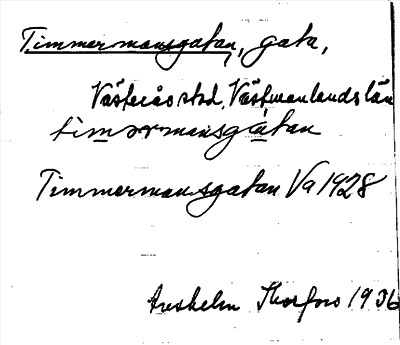 Timmermansgatan, gata,
Västerås stad, Västmanlands län
timərmansgatan
Timmermansgatan Va 1928
Thorfors 1936